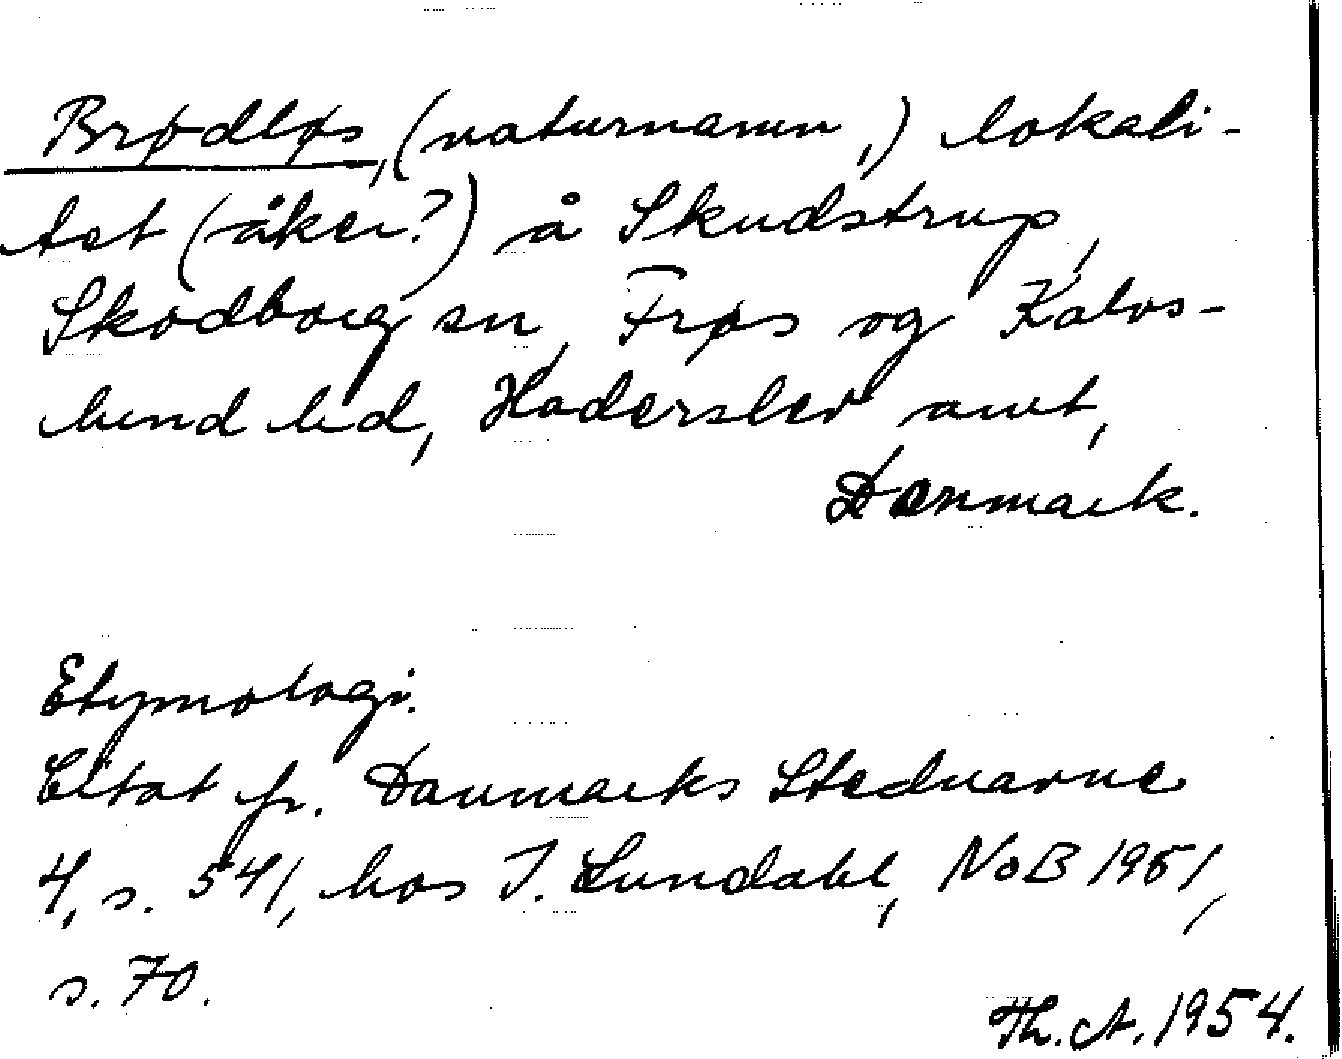 Brødløs, (naturnamn,) lokali-
tet (åker?) å Skudstrup,
Skodborg sn, Frøs og Kalvs-
lund hd, Haderslev amt,
Danmark.
Etymologi.
Citat fr. Danmarks Stednavne
4, s. 541, hos I. Lundahl, NoB 1951,
s. 70.
Th. A. 1954.